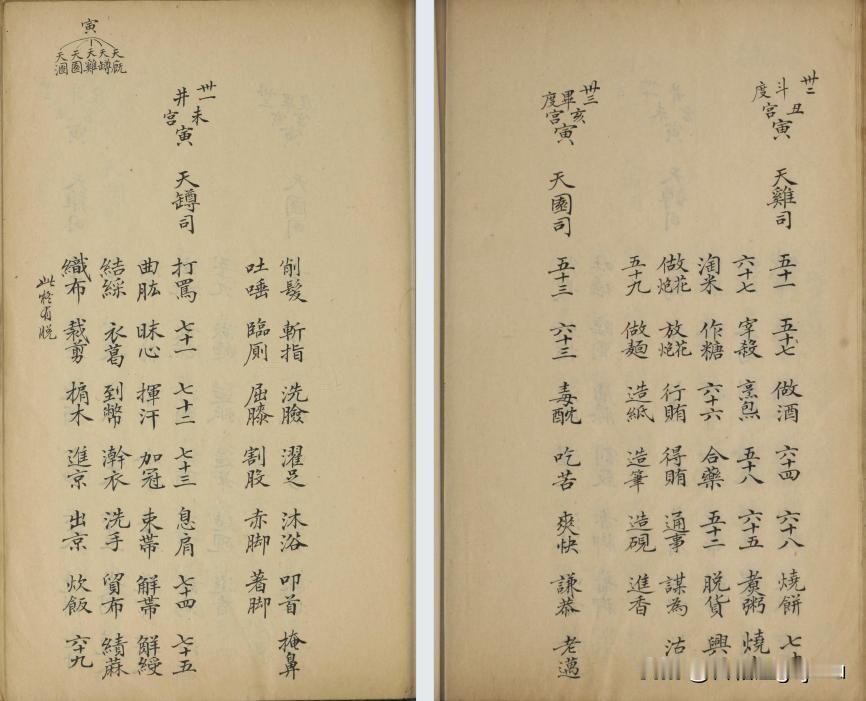 卅二
丑
斗宮度
寅
天雞司
五十一 五十七 做酒 六十四 六十八 燒餅
六十七 宰殺 烹炰 五十八 六十五 煮粥 燒
淘米 作糖 六十六 合藥 五十二 脫貨 興
做花炮 放花炮 行賄 得賄 通事 謀為 沽
五十九 做麵 造紙 造筆 造硯 進香
卅三
亥
畢宮度
寅
天園司
五十三 六十三 毒酖 吃苦 爽快 謙恭 老邁
削髮 斬指 洗臉 濯足 沐浴 叩首 掩鼻
吐唾 臨厠 屈膝 割股 赤脚 著脚
卅一
未
井宮
寅
天罇司
打罵 七十一 七十二 七十三 息肩 七十四 七十五
曲肱 昧心 揮汗 加冠 束帶 解帶 解綬
結綵 衣葛 到幣 澣衣 洗手 貿布 績蔴
織布 裁剪 掮木 進京 出京 炊飯 六十九
此 有脱
寅
天廐
天罇
天雞
天園
天溷